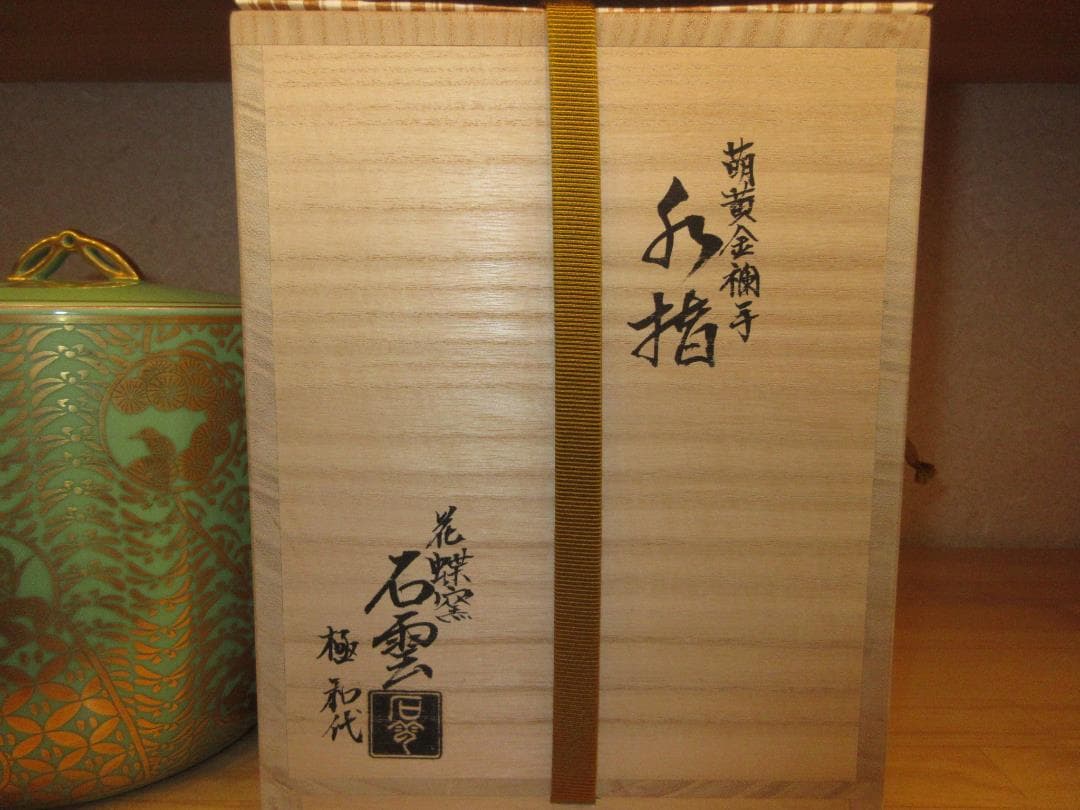 萌黄金襴手
水指
花蝶窑
石雲
極 和代